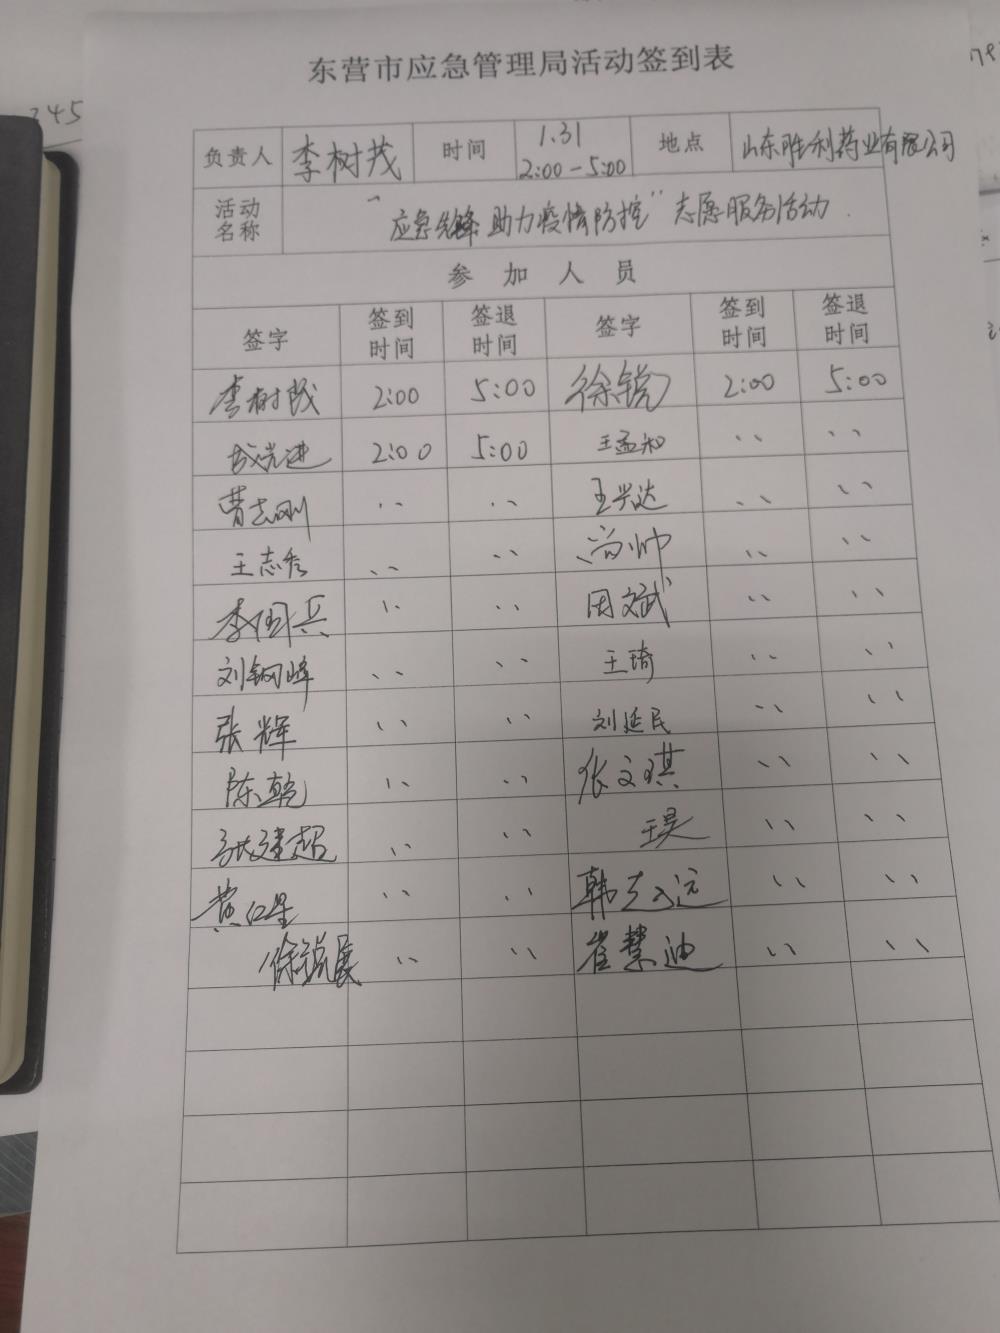 245
东营市应急管理局活动签到表
负责人 李树茂 时间 1.31 2:00-5:00 地点 山东胜利药业有限公司
活动名称 "应急先锋 助力疫情防控"志愿服务活动
参加人员
签字 签到时间 签退时间 签字 签到时间 签退时间
李树茂 2:00 5:00 徐锐 2:00 5:00
2:00 5:00 王孟和 〃 〃
曹志刚 〃 〃 王兴达 〃 〃
王志秀 〃 〃 尚帅 〃 〃
李国兵 〃 〃 田文斌 〃 〃
刘钢峰 〃 〃 王琦 〃 〃
张辉 〃 〃 刘延民 〃 〃
陈乾 〃 〃 张文琪 〃 〃
张建超 〃 〃 王昊 〃 〃
黄仁星 〃 〃 韩志远 〃 〃
徐锐晨 〃 〃 崔慧迪 〃 〃